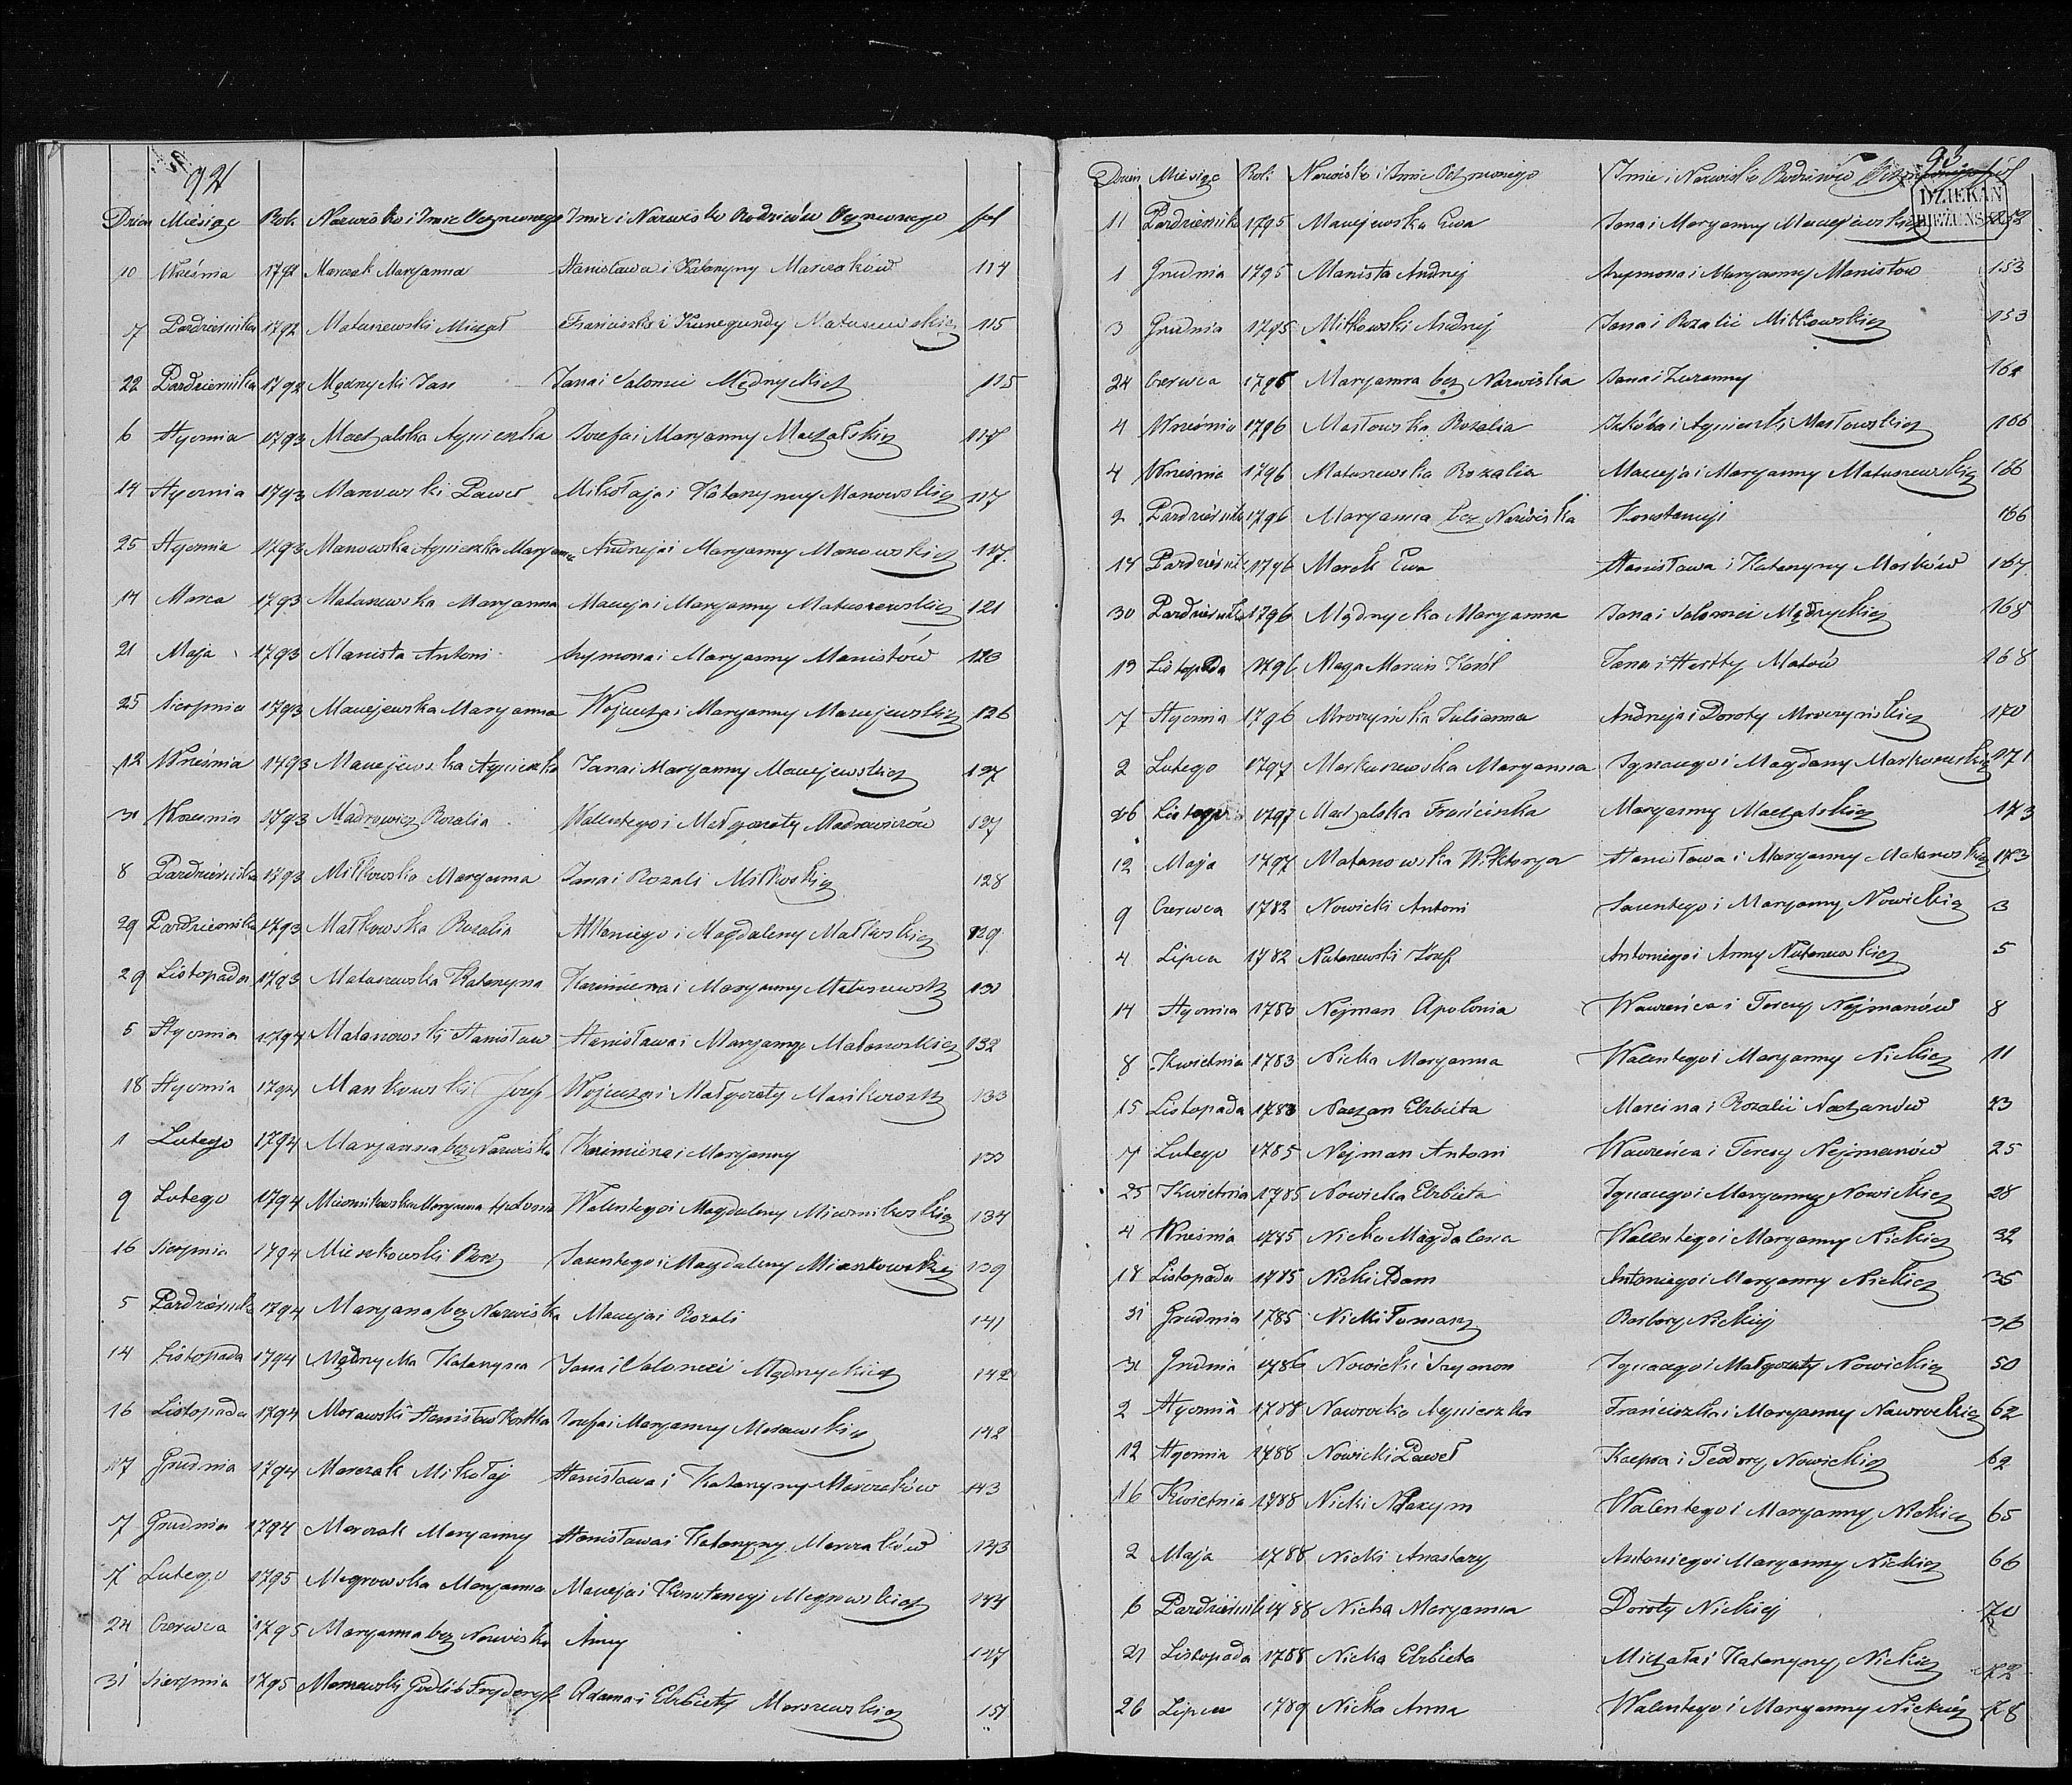 92
Dzien Miesiąc Rok Nazwisko i Imie Ochrzconego Imie i Nazwisko Rodziców Ochrzconego fol
10 Września 1792 Marczak Maryanna Stanisława i Katarzyny Marczaków 114
7 Pazdziernika 1792 Matuszewski Michał Franciszka i Kunegundy Matuszewskich 115
22 Pazdziernika 1792 Mędrzycki Jan Jana i Salomei Mędrzyckich 115
6 Stycznia 1793 Machalska Agnieszka Jozefa i Maryanny Machalskich 117
14 Stycznia 1793 Manowski Paweł Mikołaja i Katarzyny Manowskich 117
25 Stycznia 1793 Manowska Agnieszka Maryanna Andrzeja i Maryanny Manowskich 117
14 Marca 1793 Matuszewska Maryanna Macieja i Maryanny Matuszewskich 121
21 Maja 1793 Manista Antoni Szymona i Maryanny Manistów 123
25 Sierpnia 1793 Maciejewska Maryanna Wojciecha i Maryanny Maciejewskich 126
12 Września 1793 Maciejewska Agnieszka Jana i Maryanny Maciejewskich 127
Września 1793 Madrowicz Rozalia Walentego i Małgorzaty Madrowiczów 127
8 Pazdziernika 1793 Miłkowska Maryanna Jana i Rozali Miłkoskich 128
29 Pazdziernika 1793 Małkowska Rozalia i Magdaleny Małkoskich 129
29 Listopada 1793 Matuszewska Katarzyna Kazimierza i Maryanny Matuszewsk 131
5 Stycznia 1794 Matanowski Stanisław Stanisława i Maryanny Matanoskich 132
18 Stycznia 1794 Mankowski Jozef Wojciecha i Małgorzaty Mankowsk 133
1 Lutego 1794 Maryanna bez Nazwiska Kazimierza i Maryanny 133
9 Lutego 1794 Maryanna Walentego i Magdaleny 134
16 Sierpnia 1794 Mieszkowski Roch Walentego i Magdaleny Mieszkowskich 139
5 Pazdziernika 1794 Maryana bez Nazwiska Macieja i Rozali 141
14 Listopada 1794 Mędrzycka Katarzyna Jana i Salomei Mędrzyckich 142
16 Listopada 1794 Morawski Stanisław Kostka Jozefa i Maryanny Morawskich 142
17 Grudnia 1794 Marczak Mikołaj Stanisława i Katarzyny Marczaków 143
7 Grudnia 1794 Marczak Maryanny Stanisława i Katarzyny Marczaków 143
7 Lutego 1795 Megrowska Maryanna Macieja i Konstancyi Megrowskich 144
24 Czerwca 1795 Maryanna bez Nazwiska Anny 147
31 Sierpnia 1795 Morszewski Godlib Fryderyk Adama i Elzbiety Morszewskich 151
93
Dzien Miesiąc Rok Nazwisko i Imie Ochrzconego Imie i Nazwisko Rodziców fol
DZIEKAN
BIEŻUŃSKI
11 Pazdziernika 1795 Maciejewska Ewa Jana i Maryanny Maciejewskich 152
1 Grudnia 1795 Manista Andrzej Szymona i Maryanny Manistow 153
3 Grudnia 1795 Miłkowski Andrzej Jana i Rozalii Miłkowskich 153
24 Czerwca 1796 Maryanna bez Nazwiska Jana i Zuzanny 162
4 Września 1796 Masłowska Rozalia Jakóba i Agnieszki Masłowskich 166
4 Września 1796 Matuszewska Rozalia Macieja i Maryanny Matuszewskich 166
2 Pazdziernika 1796 Maryanna bez Nazwiska Konstancyi 166
14 Pazdziernika 1796 Marek Ewa Stanisława i Katarzyny Marków 167
30 Pazdziernika 1796 Mędrzycka Maryanna Jana i Salomei Mędrzyckich 168
19 Listopada 1796 Maga Marcin Karól Jana i 168
7 Stycznia 1796 Mroczyńska Julianna Andrzeja i Doroty Mroczyńskich 170
2 Lutego 1797 Markuszewska Maryanna Ignacego i Magdany Markuszewskich 171
26 1797 Machalska Franciszka Maryanny Machalskich 173
12 Maja 1797 Matanowska Wiktorya Stanisława i Maryanny Matanoskich 173
9 Czerwca 1782 Nowicki Antoni Walentego i Maryanny Nowickich 3
4 Lipca 1782 Natanewski Jozef Antoniego i Anny Natanewskich 5
14 Stycznia 1783 Nejman Apolonia Wawrzeńca i Teresy Nejmanów 8
8 Kwietnia 1783 Nicka Maryanna Walentego i Maryanny Nickich 11
15 Listopada 1783 Nachan Elzbieta Marcina i Rozalii Nachanów 23
7 Lutego 1785 Nejman Antoni Wawrzeńca i Teresy Nejmanów 25
25 Kwietnia 1785 Nowicka Elzbieta Ignacego i Maryanny Nowickich 28
4 Września 1785 Nicka Magdalena Walentego i Maryanny Nickich 32
18 Listopada 1785 Nicki Adam Antoniego i Maryanny Nickich 35
31 Grudnia 1785 Nicki Tomasz Barbary Nickiej 36
31 Grudnia 1786 Nowicki Szymon Ignacego i Małgorzaty Nowickich 50
2 Stycznia 1788 Nawrocka Agnieszka Franciszka i Maryanny Nawrockich 62
12 Stycznia 1788 Nowicki Paweł Kacpra i Teodory Nowickich 62
16 Kwietnia 1788 Nicki Walentego i Maryanny Nickich 65
2 Maja 1788 Nicki Anastazy Antoniego i Maryanny Nickich 66
6 Pazdziernik 1788 Nicka Maryanna Doroty Nickiej 70
21 Listopada 1788 Nicka Elzbieta Michała i Katarzyny Nickich 72
26 Lipca 1789 Nicka Anna Walentego i Maryanny Nickich 78